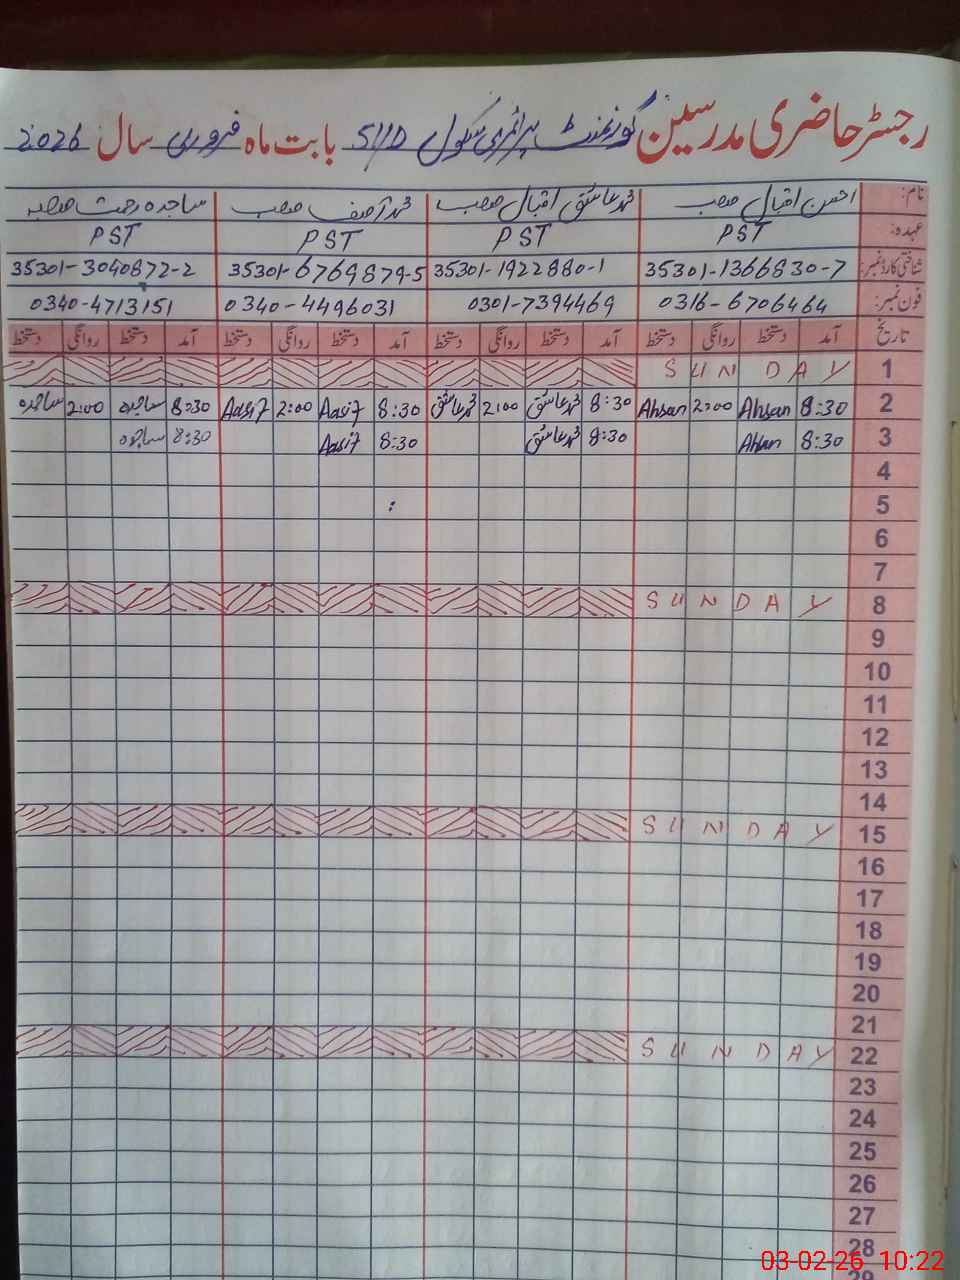 رجسٹر حاضری مدرسین گورنمنٹ پرائمری سکول 51/D بابت ماہ فروری سال 2026
نام: احسن اقبال صاحب محمد عاشق اقبال صاحب محمد آصف صاحب ساجدہ رحمت صاحبہ
عہدہ: PST PST PST PST
شناختی کارڈ نمبر: 35301-1366830-7 35301-1922880-1 35301-6769879-5 35301-3040872-2
فون نمبر: 0316-6706464 0301-7394469 0340-4496031 0340-4713151
تاریخ آمد دستخط روانگی دستخط آمد دستخط روانگی دستخط آمد دستخط روانگی دستخط آمد دستخط روانگی دستخط
1 SUNDAY
2 8:30 Ahsan 2:00 Ahsan 8:30 محمد عاشق 2:00 محمد عاشق 8:30 Aasif 2:00 Aasif 8:30 ساجدہ 2:00 ساجدہ
3 8:30 Ahsan 8:30 محمد عاشق 8:30 Aasif 8:30 ساجدہ
4
5
6
7
8 SUNDAY
9
10
11
12
13
14
15 SUNDAY
16
17
18
19
20
21
22 SUNDAY
23
24
25
26
27
28
29
03-02-26 10:22